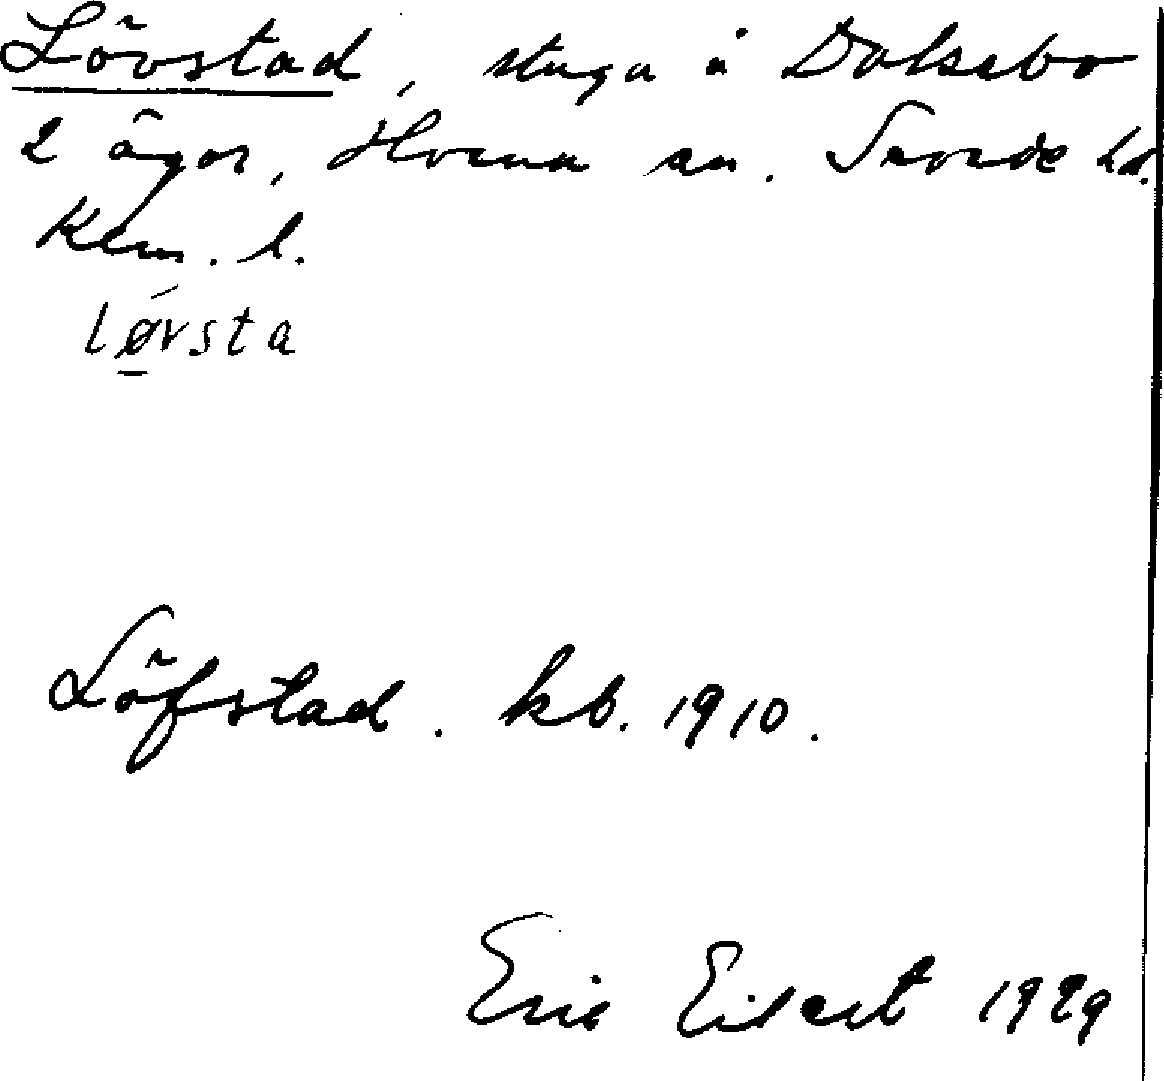 Lövstad, stuga å Dalsebo
2 ägor, Horna sn. Snorde hd.
Klm. l.
løvsta
Löfstad. kb. 1910.
Eric Eilert 1929